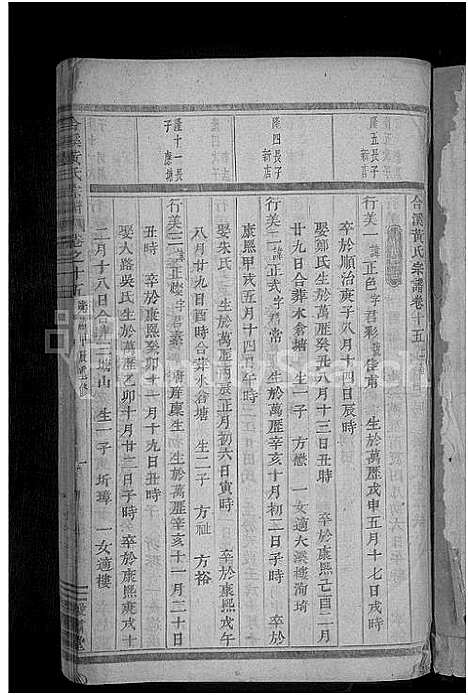 合溪黃氏宗譜卷十五
隆五長子
新店
行美一 諱正色字君彩 生於萬歷戊申五月十七日戌時
卒於順治庚子八月十四日辰時
娶鄭氏生於萬歷癸丑八月十三日丑時 卒於康熙己酉二月
廿九日合葬水倉塘 生一子 方懋 一女適大溪樓洵琦
隆四長子
新店
行美二 諱正式字君常 生於萬歷辛亥十月初二日子時 卒於
康熙甲戌五月十四日
娶朱氏生於萬歷丙辰正月初六日寅時 卒於康熙戊午
八月廿九日酉時合葬水倉塘 生二子 方祉 方裕
隆十一長
子 康塘
行美三 諱正 字君泰 生於萬歷辛亥十一月二十日
丑時 卒於康熙癸卯十一月十九日丑時
娶大路吳氏生於萬歷乙卯十月廿二日子時 卒於康熙庚戌十
二月十八日合葬 山 生一子 圻璋 一女適樓
合溪黃氏宗譜 卷之十五